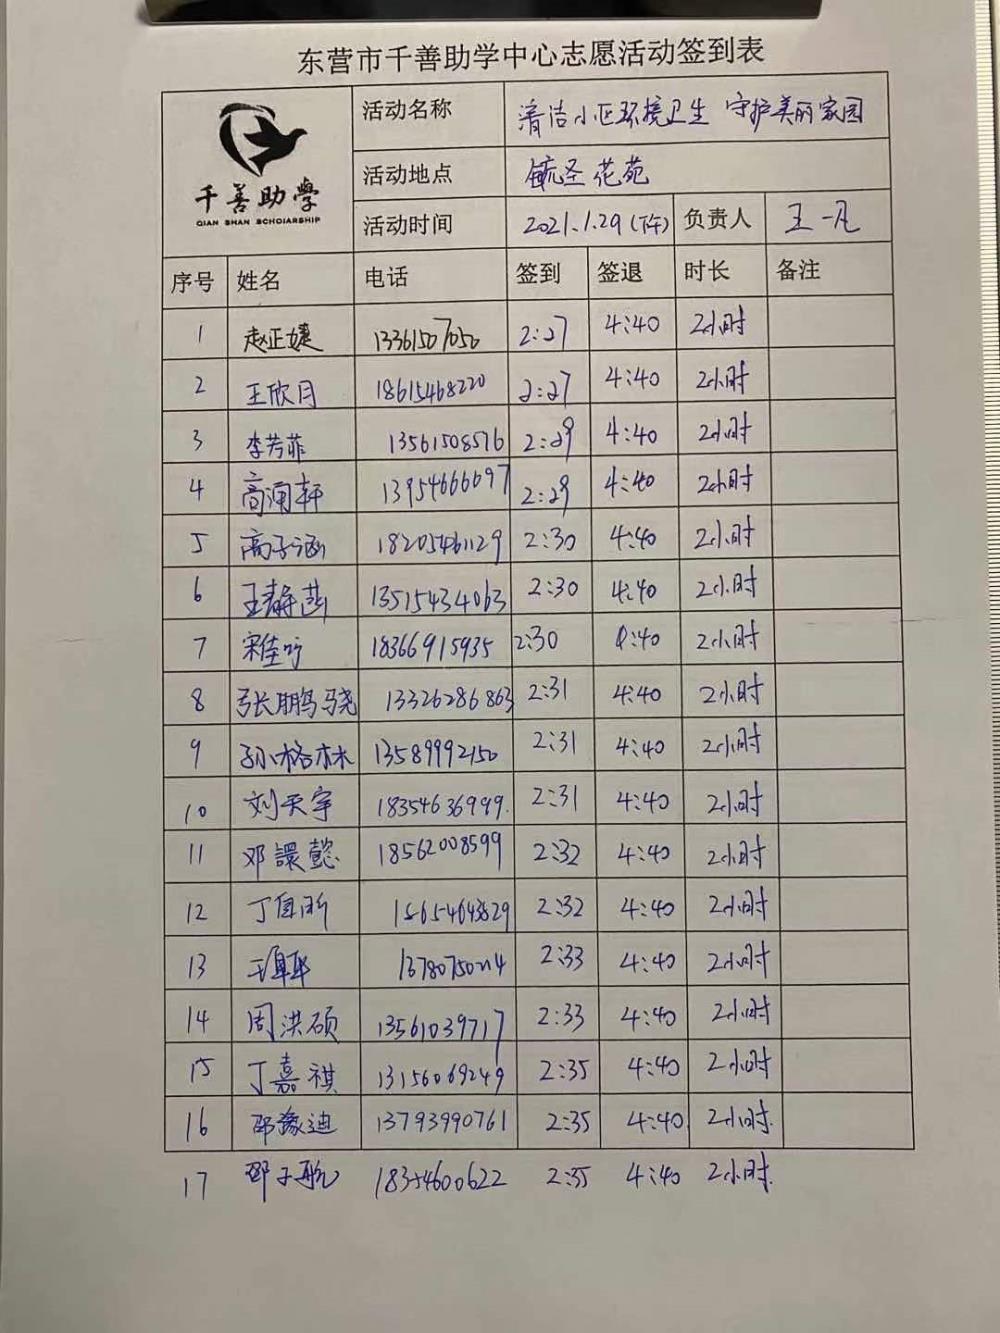 东营市千善助学中心志愿活动签到表
千善助学
QIAN SHAN SCHOIARSHIP
活动名称 清洁小区环境卫生 守护美丽家园
活动地点 毓圣花苑
活动时间 2021.1.29(下午) 负责人 王一凡
序号 姓名 电话 签到 签退 时长 备注
1 赵正婕 13361507050 2:27 4:40 2小时
2 王欣月 18615468220 2:27 4:40 2小时
3 李芳菲 13561508576 2:29 4:40 2小时
4 高润轩 13954666697 2:29 4:40 2小时
5 高子涵 18205461129 2:30 4:40 2小时
6 王静茹 13515434063 2:30 4:40 2小时
7 宋佳吟 18366915935 2:30 4:40 2小时
8 张鹏骁 13326286863 2:31 4:40 2小时
9 孙格林 13589992150 2:31 4:40 2小时
10 刘天宇 18354636999. 2:31 4:40 2小时
11 邓譞懿 18562008599 2:32 4:40 2小时
12 丁 15654643829 2:32 4:40 2小时
13 2:33 4:40 2小时
14 周洪硕 13561039717 2:33 4:40 2小时
15 丁嘉祺 13156069249 2:35 4:40 2小时
16 邵豫迪 13793990761 2:35 4:40 2小时.
17 邵子航 18354600622 2:35 4:40 2小时.